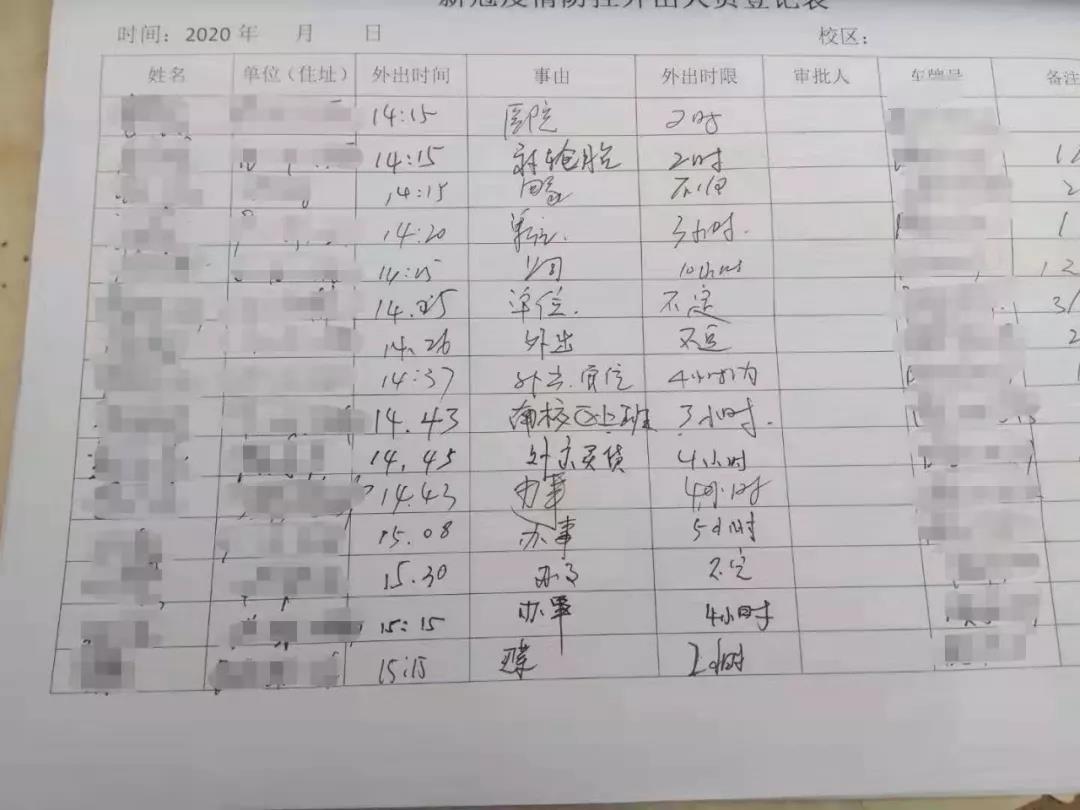 新冠疫情防控外出人员登记表
时间：2020 年 月 日 校区：
姓名 单位（住址） 外出时间 事由 外出时限 审批人 车牌号 备注
14:15 医院 2时
14:15 轮胎 2时
14:15
14:20 单位. 3小时.
公司 10小时
14.25 单位. 不定
14.26 外出 不定
14:37 外出. 单位 4小时内
14.43 南校区上班 3小时.
14.45 外出买货 4小时
14.43 办事 小时
15.08 办事 5小时
15.30 办事 不定
15:15 办事 4小时
15:15 2小时